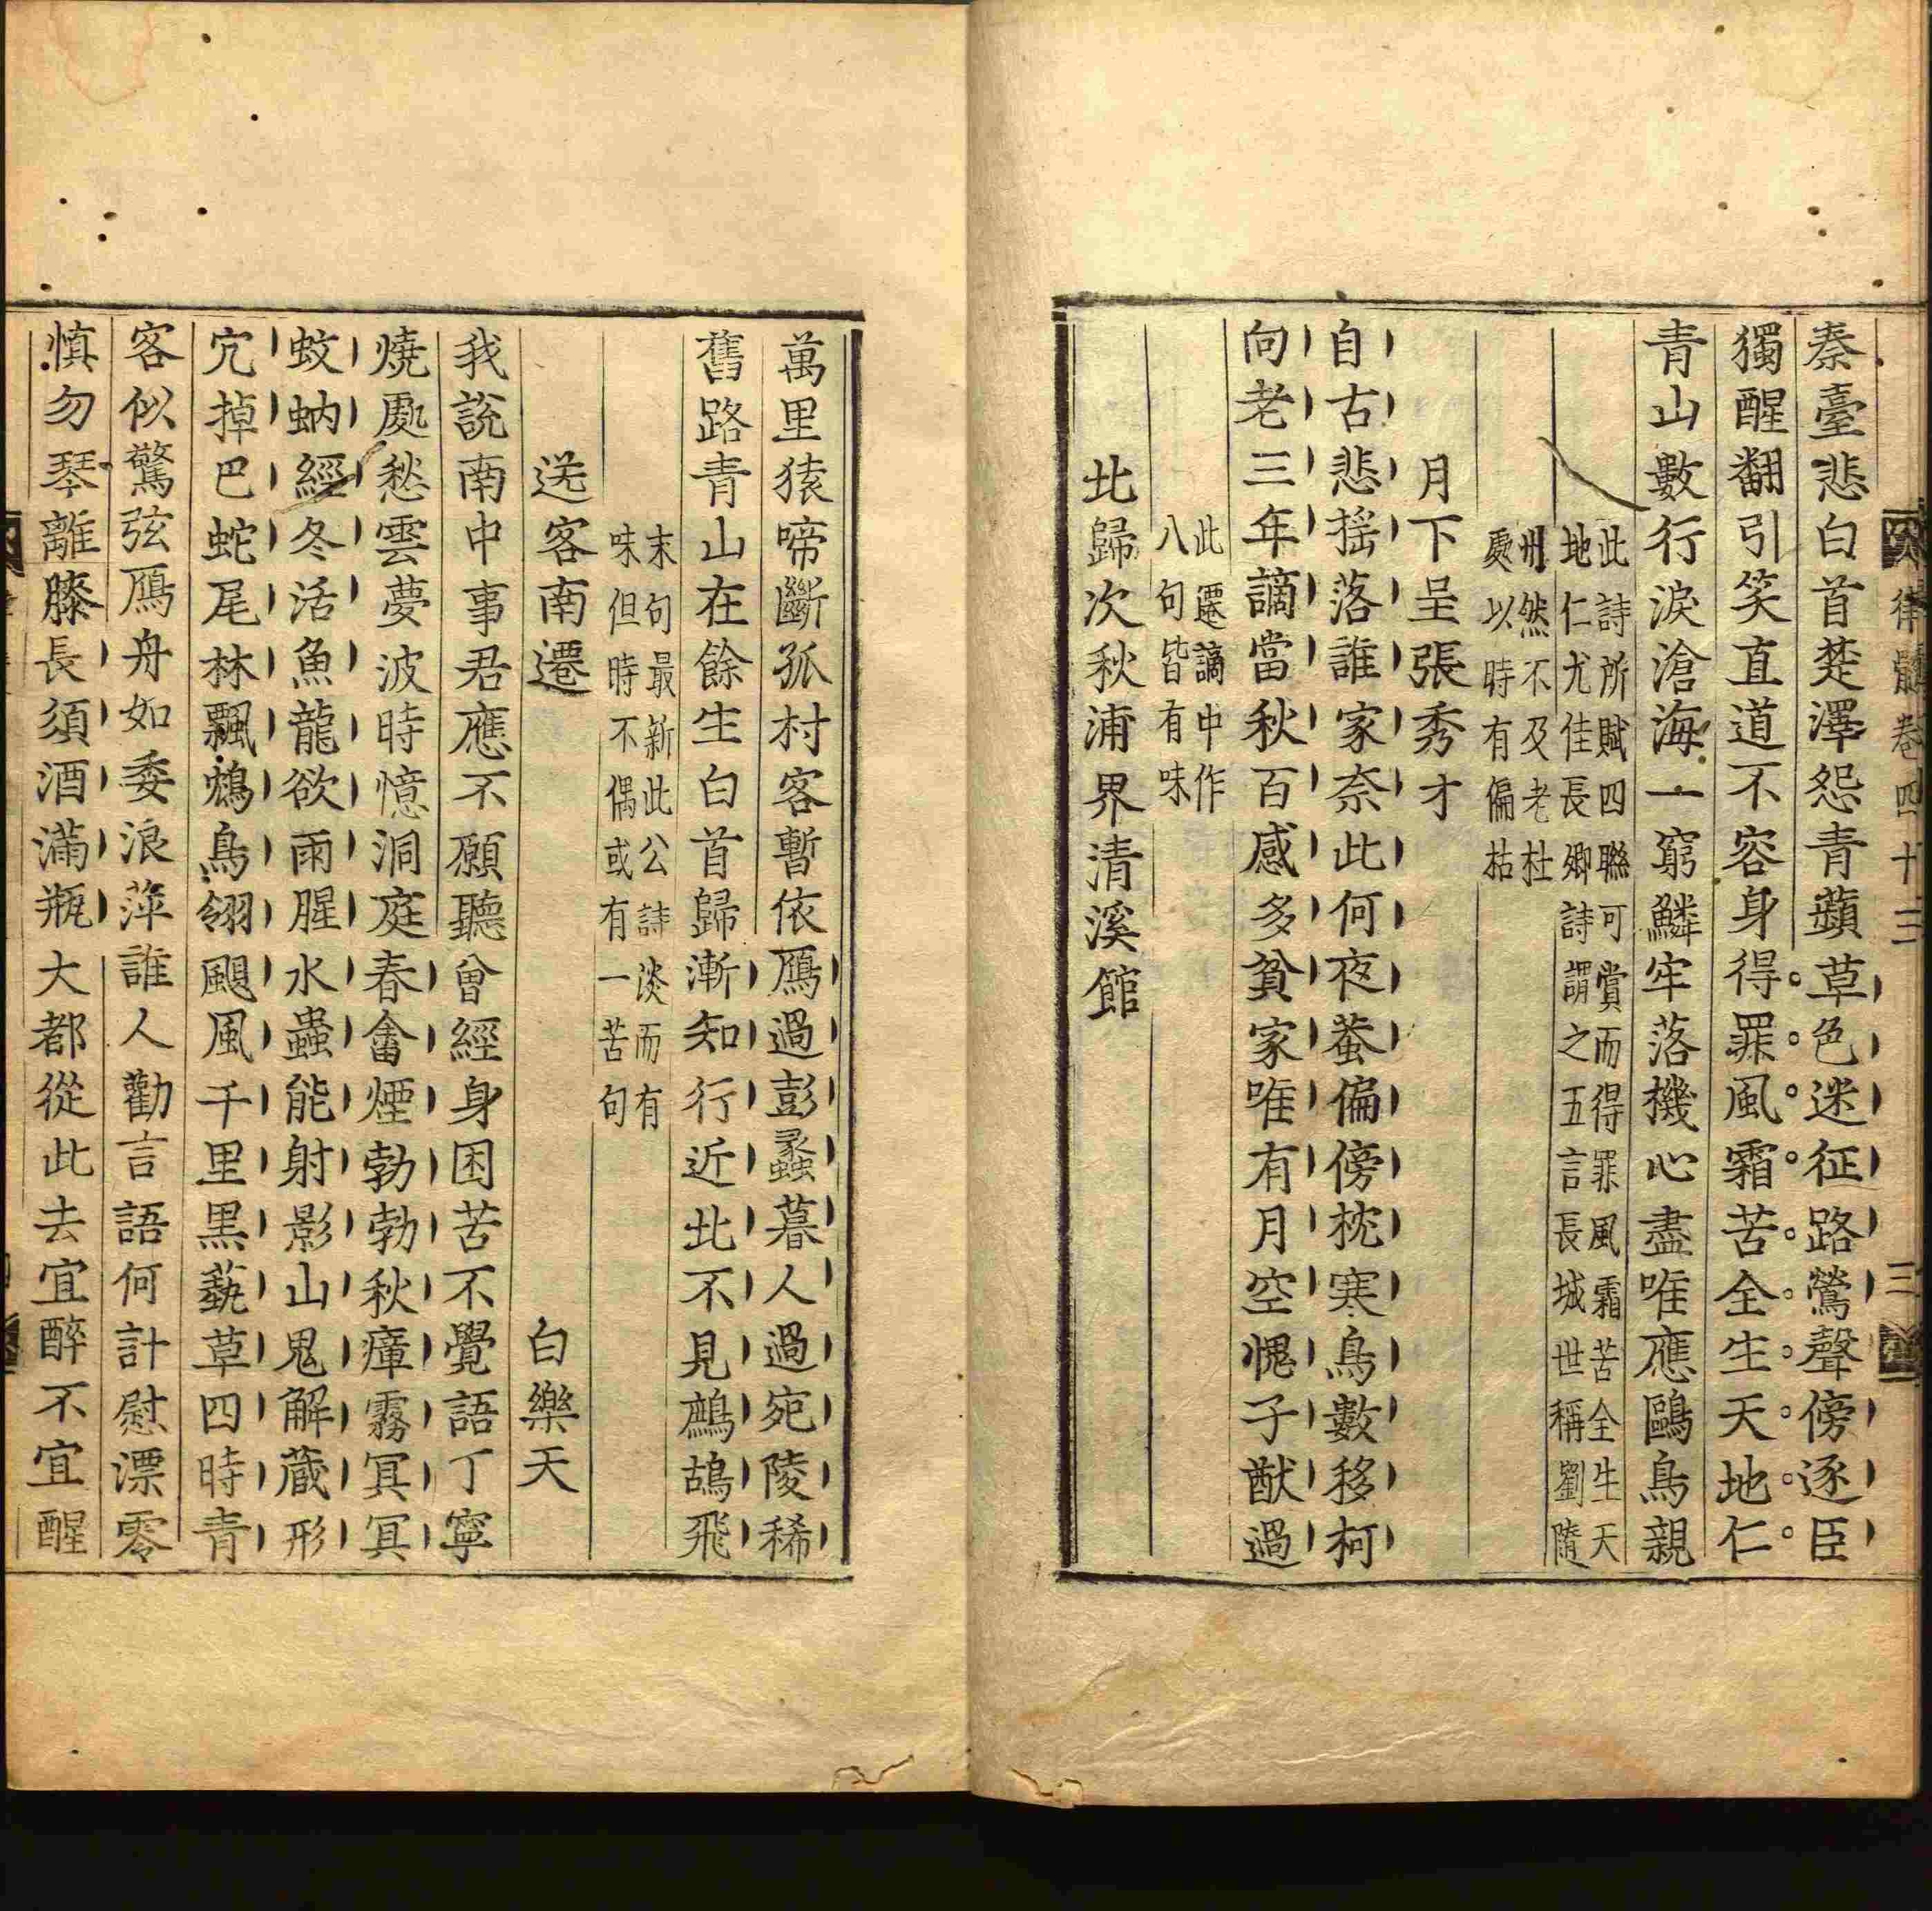 律髓卷四十三
三
秦臺悲白首楚澤怨青蘋草色迷征路鶯聲傍逐臣
獨醒翻引笑直道不容身得罪風霜苦全生天地仁
青山數行淚滄海一窮鱗牢落機心盡唯應鷗鳥親
此詩所賦四聯可賞而得罪風霜苦全生天
地仁尤佳長卿詩謂之五言長城世稱劉隨
州然不及老杜
處以時有偏枯
月下呈張秀才
自古悲搖落誰家奈此何夜蛬偏傍枕寒鳥數移柯
向老三年謫當秋百感多貧家唯有月空愧子猷過
此遷謫中作
八句皆有味
北歸次秋浦界清溪館
萬里猿啼斷孤村客暫依鴈過彭蠡暮人過宛陵稀
舊路青山在餘生白首歸漸知行近北不見鷓鴣飛
末句最新此公詩淡而有
味但時不偶或有一苦句
送客南遷
白樂天
我說南中事君應不願聽曾經身困苦不覺語丁寧
燒處愁雲夢波時憶洞庭春畬煙勃勃秋瘴霧冥冥
蚊蚋經冬活魚龍欲雨腥水蟲能射影山鬼解藏形
穴掉巴蛇尾林飄鴆鳥翎颶風千里黑蓺草四時青
客似驚弦鴈舟如委浪萍誰人勸言語何計慰漂零
慎勿琴離膝長須酒滿瓶大都從此去宜醉不宜醒